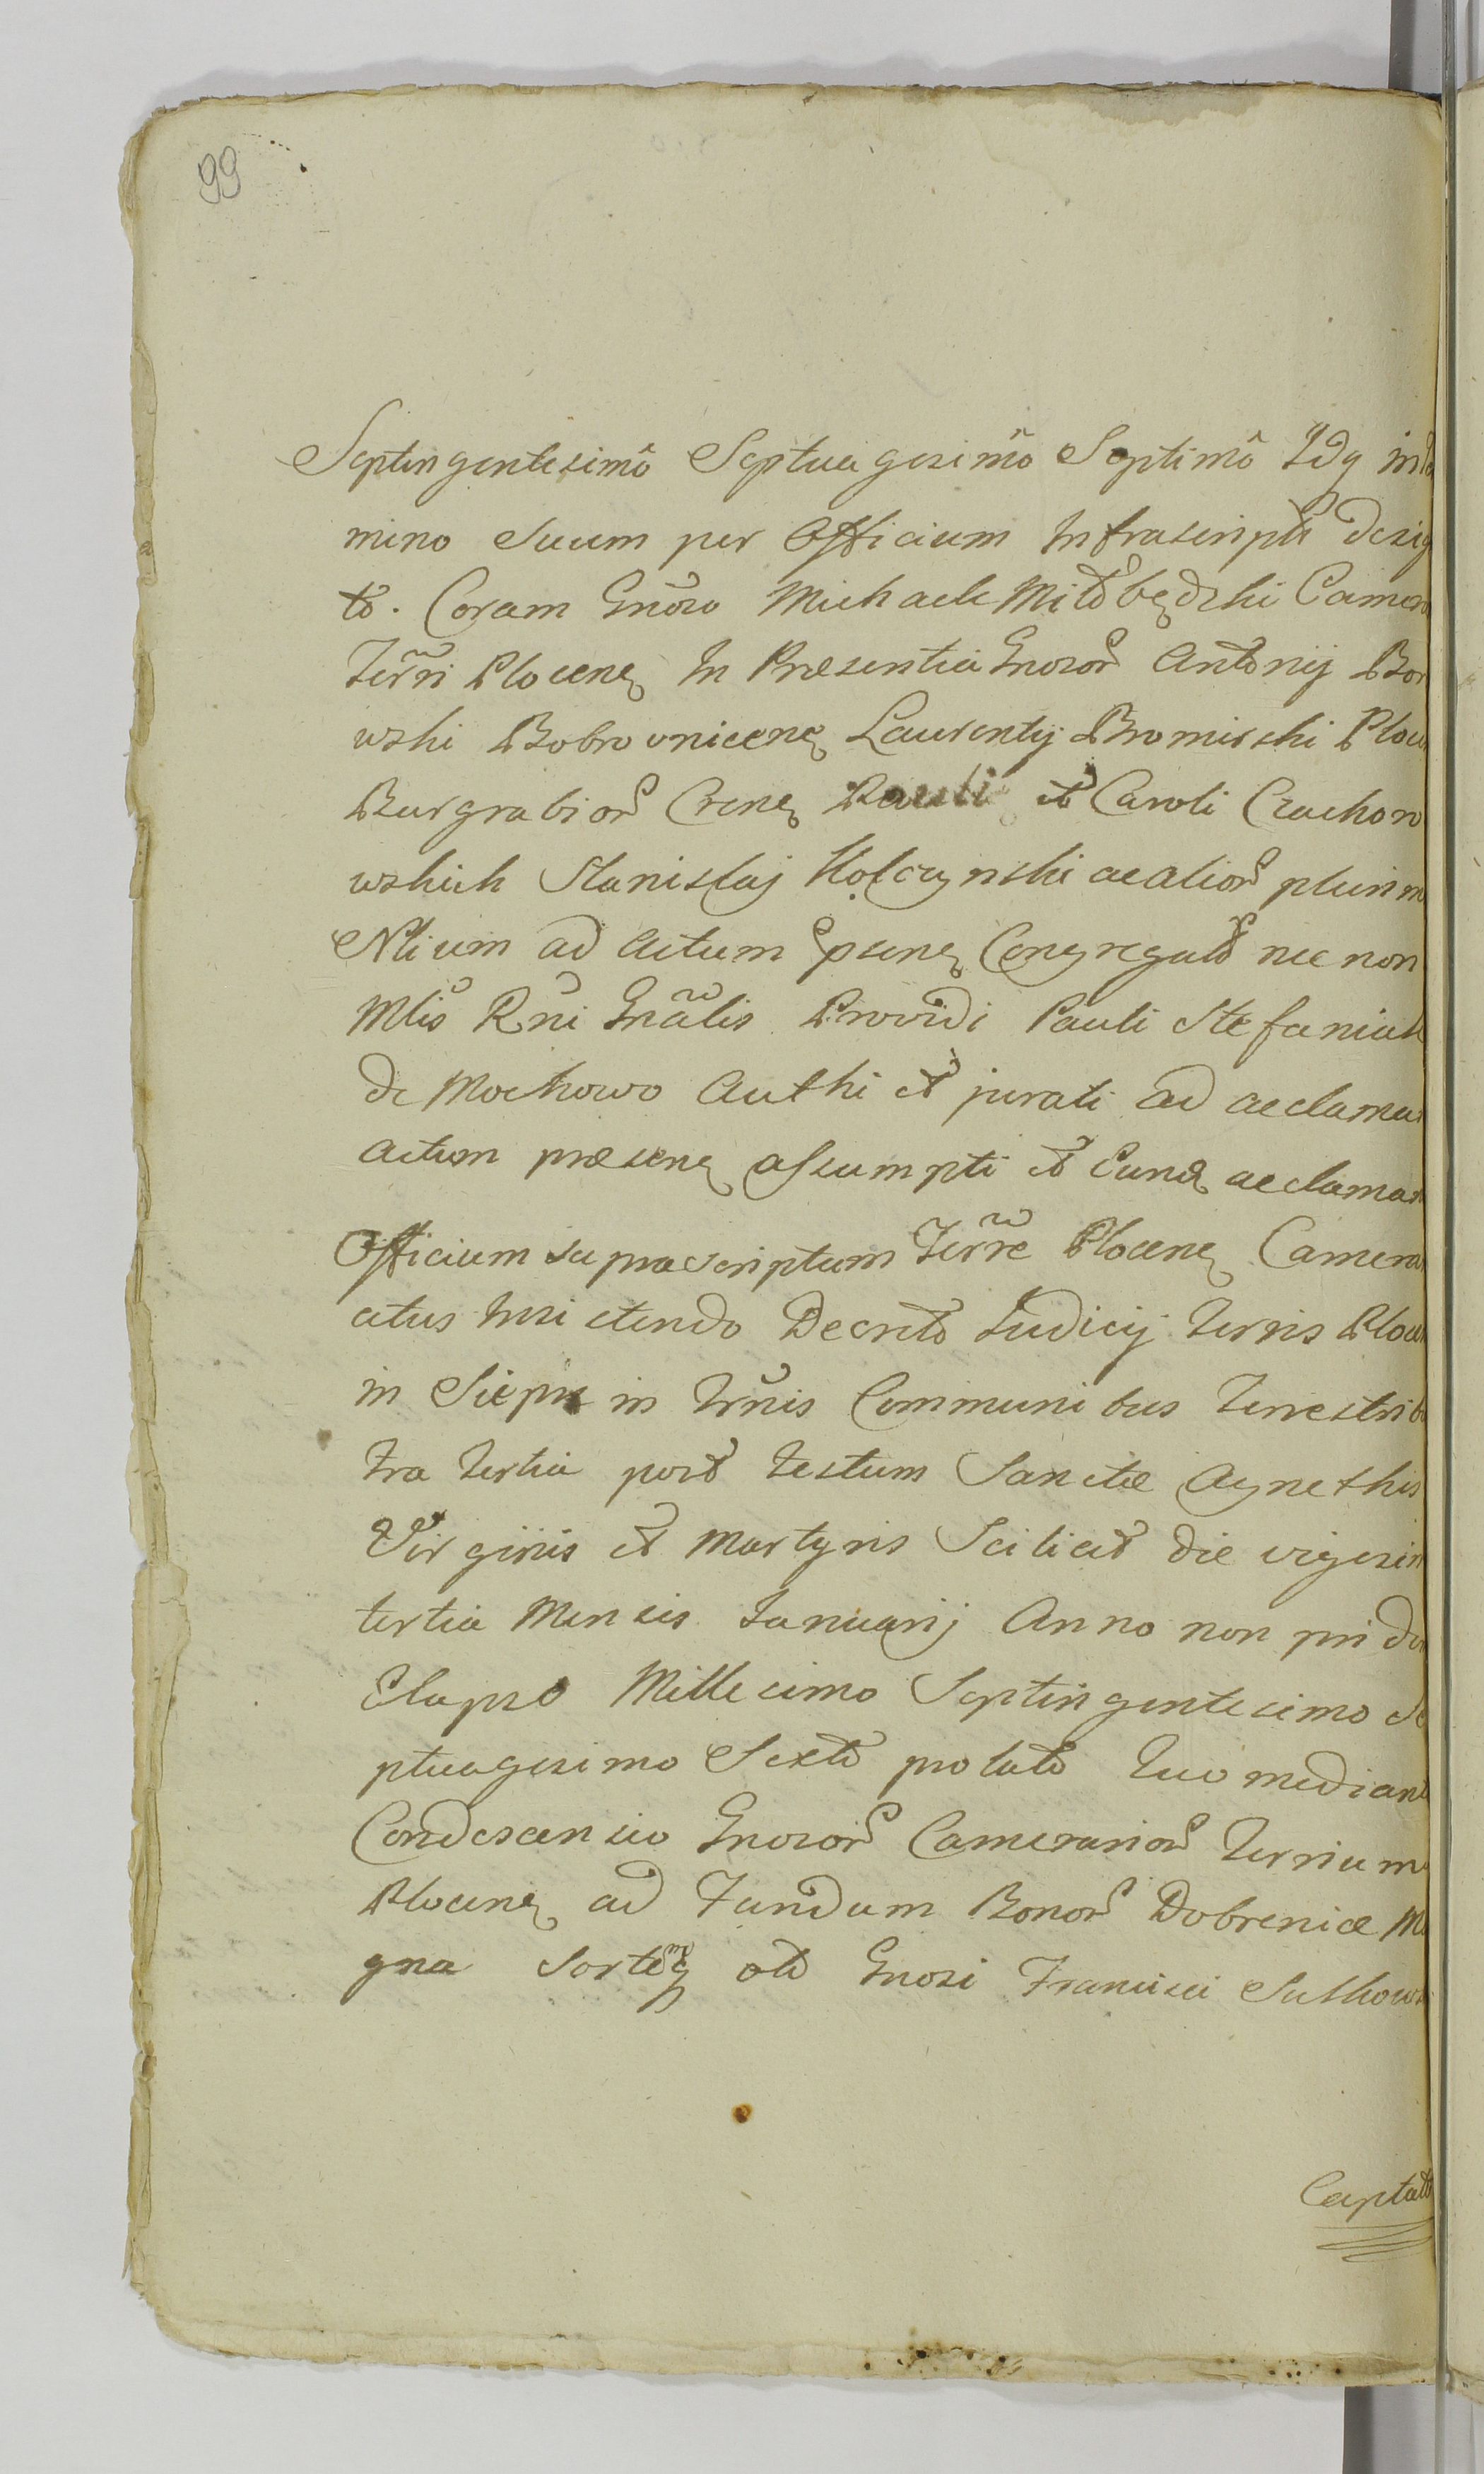 99
Septingentesimô Septuagesimô Septimô Idq in
mino suum per Officium Infrascriptũ desig
to. Coram Gnõso Michaele Miłobędzki Camer
Terrĩ Plocenę In Præsentia Gnosor Antonij Bor
wski Bobrownicenę Laurentij Bromirski Ploc
Burgrabior Crenę Pauli et Caroli Czachor
wskich Stanislaj Kołczynski ac alior plurim
Nlium ad actum psenę Congregat nec non
Mlis Rni Gnãlis Providi Pauli Stefaniak
de Mochowo Authi et jurati ad acclama
actum præsenę assumpti et Eund acclaman
Officium supra scriptum Terrẽ Plocenę Camera
atus Insistendo Decreto Judicij Terris Ploce
in Siepr in Trnis Communibus Terrestrib
tra tertia post Festum Sanctæ Agnethis
Virginis et Martyris Scilicet die vigesim
tertia Mensis Januarij Anno non prido
Elapso Millesimo Septingentesimo Se
ptuagesimo Sexto prolato Quo median
Condescensio Gnosor Camerarior Terrium
Plocenę ad Fundum Bonor Dobrenice Ma
gna Sortemq olĩ Gnosi Francisci Sutkows
Captat